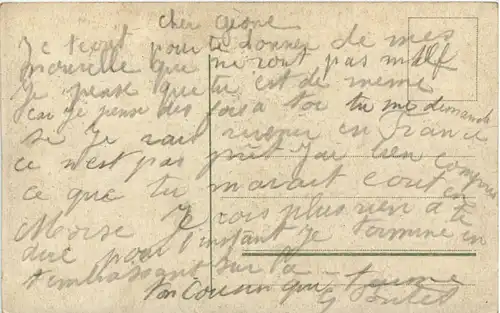 cher
Je t'ecrit pour te donner de mes
nouvelle que ne vont pas mal
Je pense que tu est de meme
car je pense des fois a toi tu me demande
si Je vait revenir en france
ce n'est pas prêt J'ai bien compris
ce que tu mavait ecrit en
Morse Je vois plus rien a te
dire pour l'instant Je termine en
t'embrassant sur la
ton cousin qui t'aime
G